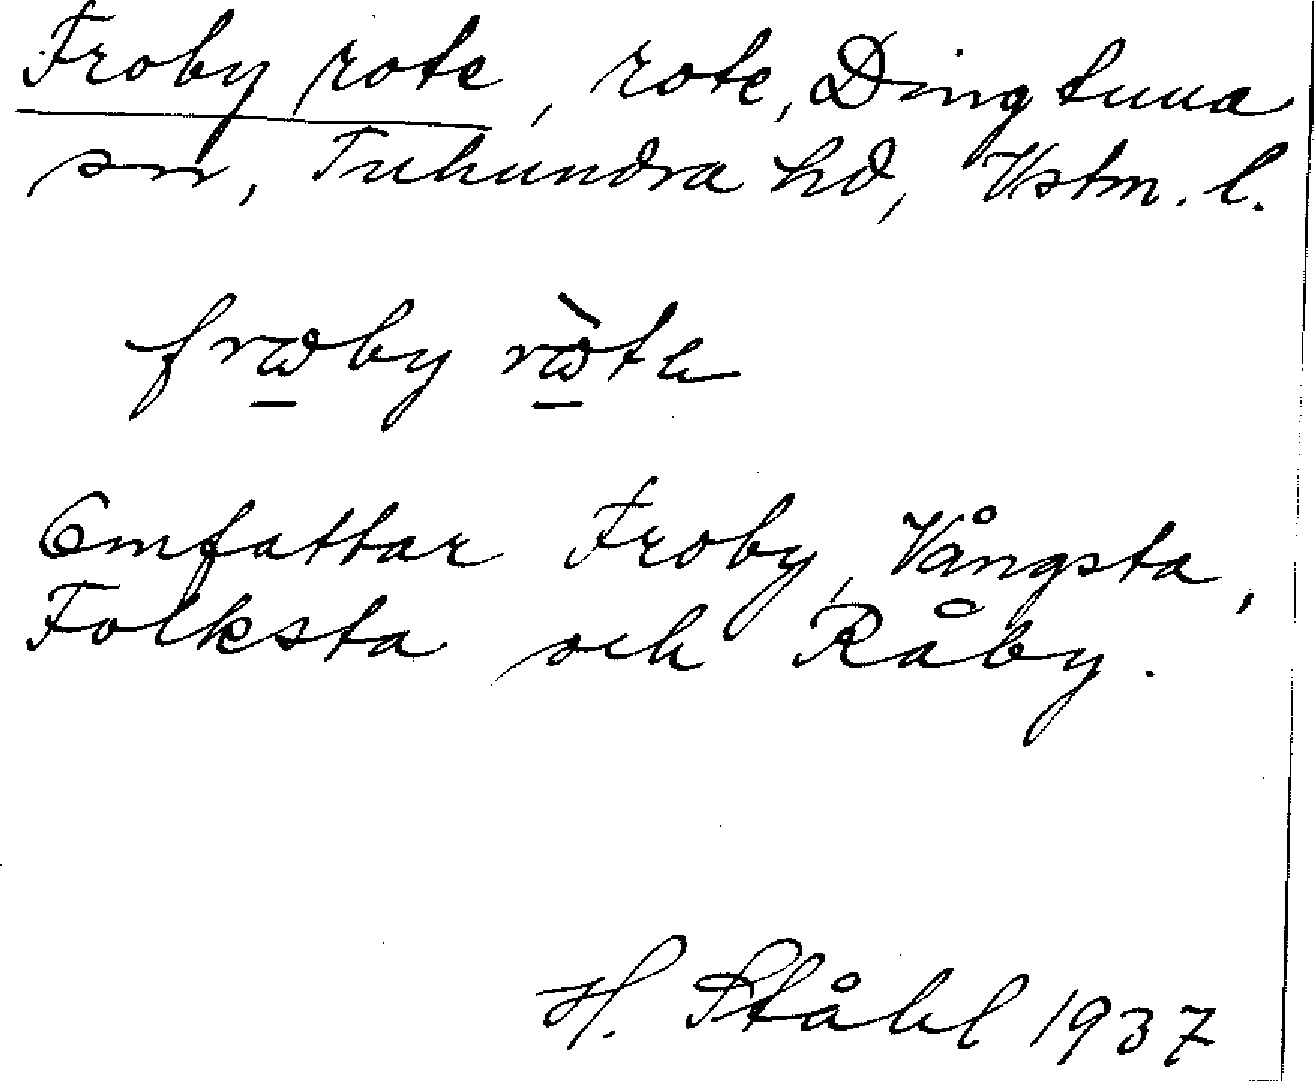 Froby rote, rote, Dingtuna
sn, Tuhundra hd, Vstm. l.
Omfattar Froby, Vångsta,
Folksta och Råby.
H. Ståhl 1937